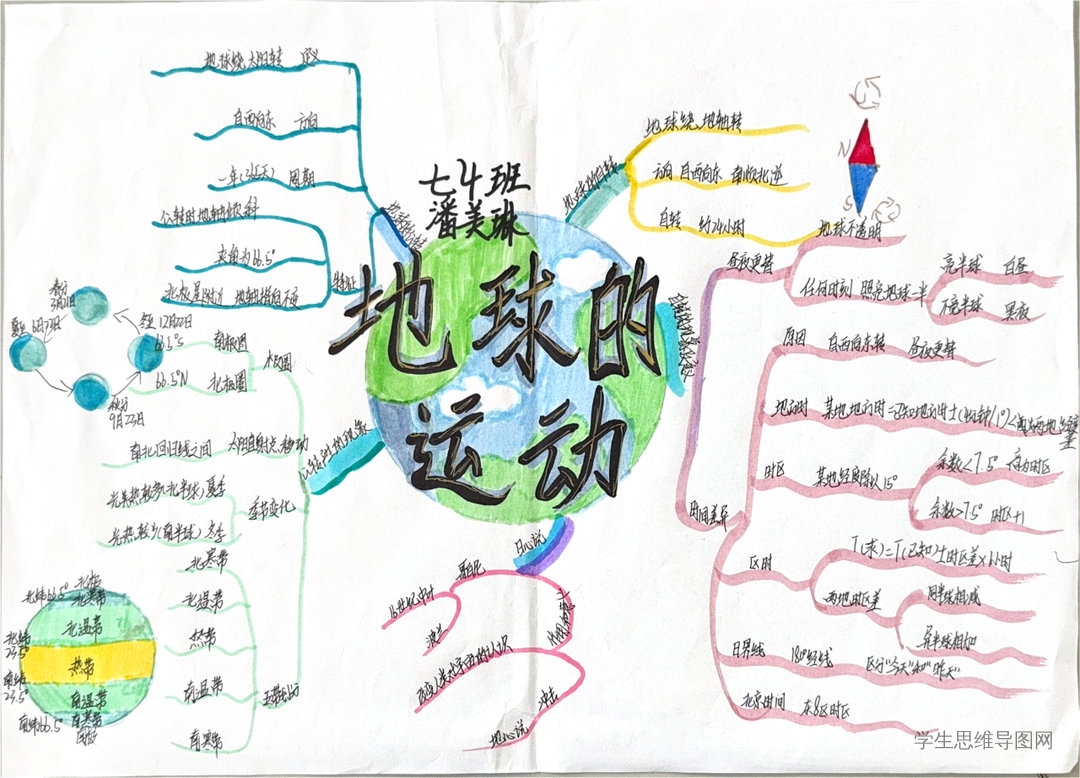 七4班
潘美琳
地球的
运动
地球绕太阳转 定义
自西向东 方向
一年(365天) 周期
公转时地轴倾斜
夹角为66.5°
北极星附近 地轴指向不变
特征
春分
3月21日
夏至 6月22日
冬至 12月22日
秋分
9月23日
66.5°S 南极圈
66.5°N 北极圈
极圈
南北回归线之间 太阳直射点移动
光热较多(北半球)夏季
光热较少(南半球)冬季
季节变化
北寒带
北温带
热带
南温带
南寒带
五带划分
北极
北纬66.5°
北寒带
北温带
北纬
23.5°
热带
南纬
23.5°
南温带
南寒带
南纬66.5°
南极
地球的自转
地球绕地轴转
方向 自西向东 南顺北逆
自转 约24小时
N
S
昼夜更替
地球不透明
任何时刻 照亮地球一半
亮半球 白昼
不亮半球 黑夜
时间差异
原因 自西向东转 昼夜更替
地方时
时区 某地经度除以15°
余数<7.5° 应为时区
余数>7.5° 时区+1
区时
T(求)=T(已知)±时区差×1小时
两地时区差
同半球相减
异半球相加
日界线 180°经线 区分"今天"和"昨天"
北京时间 东8区时区
日心说
哥白尼
16世纪中叶
波兰
冲击
地心说
学生思维导图网